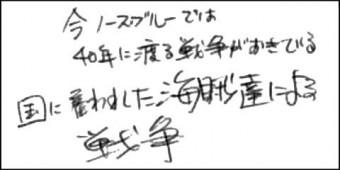 今ノースブルーでは
40年に渡る戦争がおきている
国に雇われした海賊達による
戦争